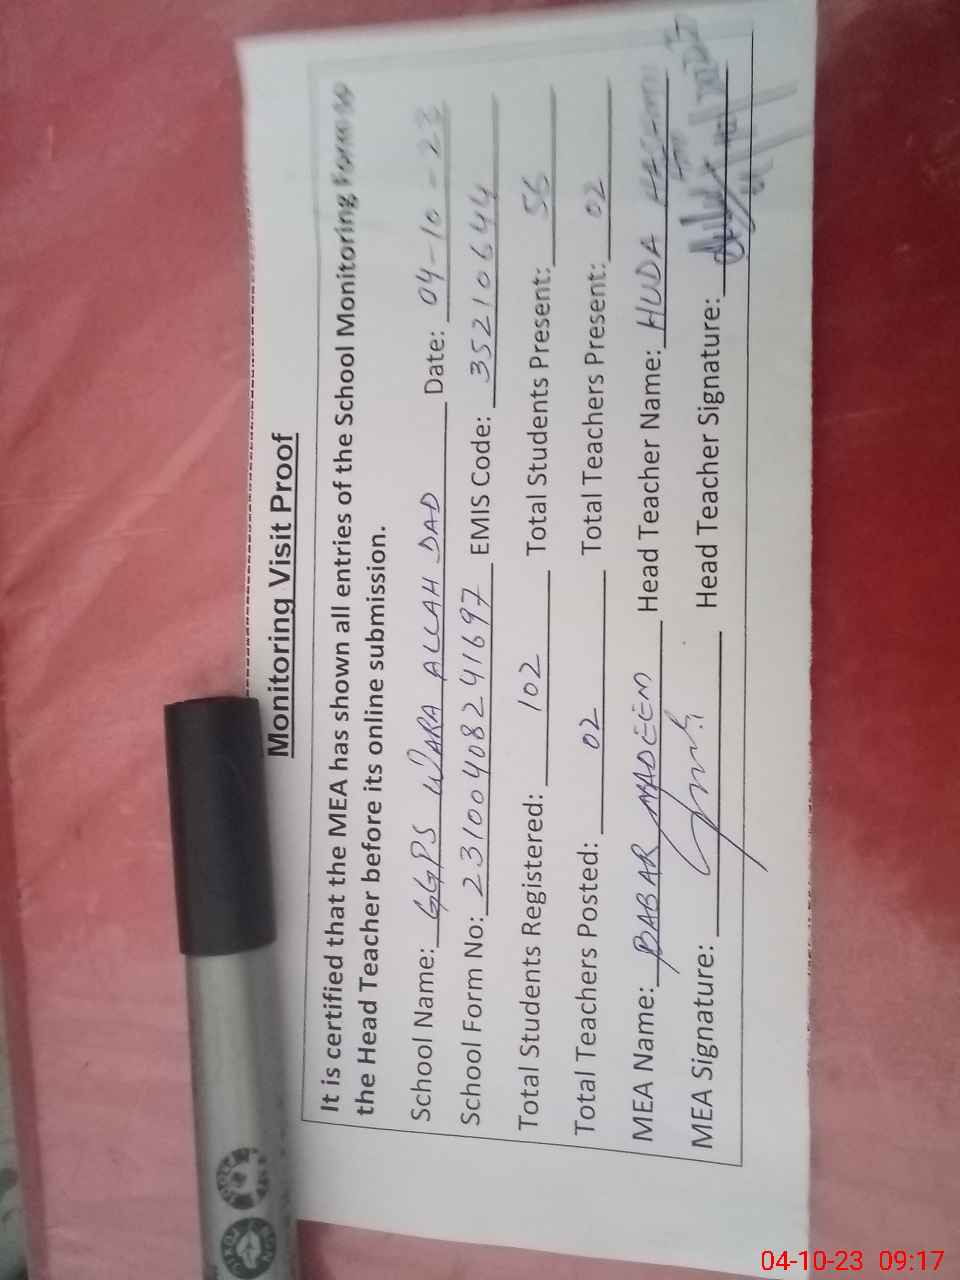 Monitoring Visit Proof
It is certified that the MEA has shown all entries of the School Monitoring Form to
the Head Teacher before its online submission.
School Name: GGPS WARA ALLAH DAD Date: 04-10-23
School Form No: 23100408241697 EMIS Code: 35210644
Total Students Registered: 102 Total Students Present: 56
Total Teachers Posted: 02 Total Teachers Present: 02
MEA Name: BABAR NADEEM Head Teacher Name: HUDA
MEA Signature: Head Teacher Signature:
04-10-23 09:17